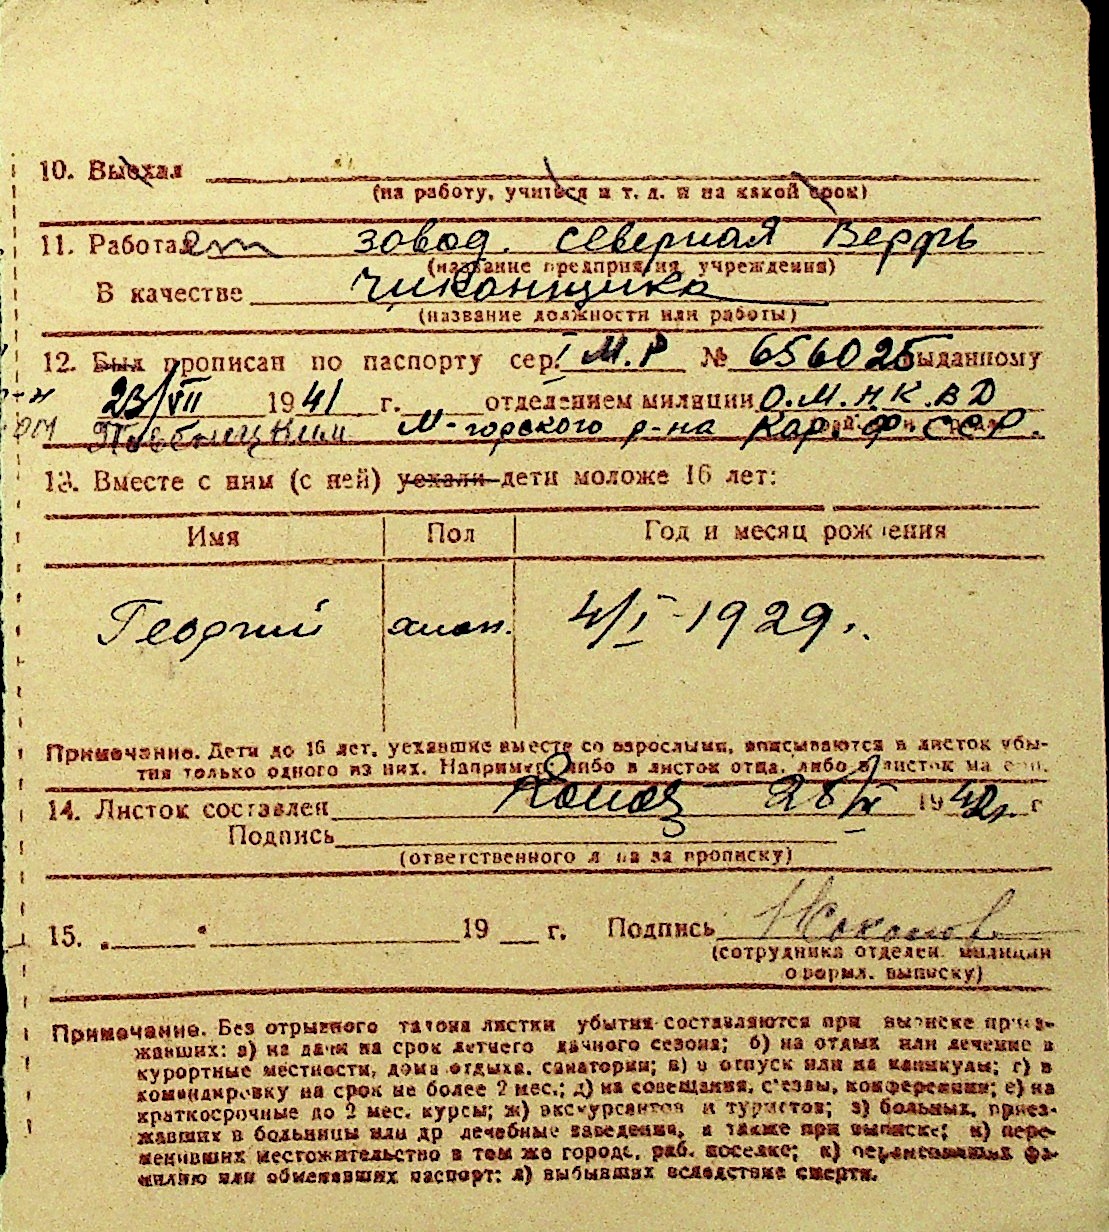 10. Выехал
(на работу, учиться и т. д. и на какой срок)
11. Работает завод. Северная Верфь
(название предприятия, учреждения)
В качестве чиканщика
(название должности или работы)
12. Был прописан по паспорту сер. I М.Р № 656025 выданному
23/VII 1941 г. отделением милиции О.М.Н.К.ВД
М-горского р-на Кар. Ф ССР.
13. Вместе с ним (с ней) уехали дети моложе 16 лет:
Имя Пол Год и месяц рождения
Георгий 4/I-1929г.
Примечание. Дети до 16 лет, уехавшие вместе со взрослыми, вписываются в листок убы-
тия только одного из них. Например, либо в листок отца, либо в листок матери.
14. Листок составлен 28/XI 1942 г
Подпись
(ответственного лица за прописку)
15. „ " 19 г. Подпись
(сотрудника отделен. милиции
оформл. выписку)
Примечание. Без отрывного талона листки убытия составляются при выписке приез-
жавших: а) на дачи на срок летнего дачного сезона; б) на отдых или лечение в
курортные местности, дома отдыха, санатории; в) в отпуск или на каникулы; г) в
командировку на срок не более 2 мес.; д) на совещания, съезды, конференции; е) на
краткосрочные до 2 мес. курсы; ж) экскурсантов и туристов; з) больных, приез-
жавших в больницы или др лечебные заведения, а также при выписке; и) пере-
менивших местожительство в том же городе, раб. поселке; к) переменивших фа-
милию или обменявших паспорт; л) выбывших вследствие смерти.